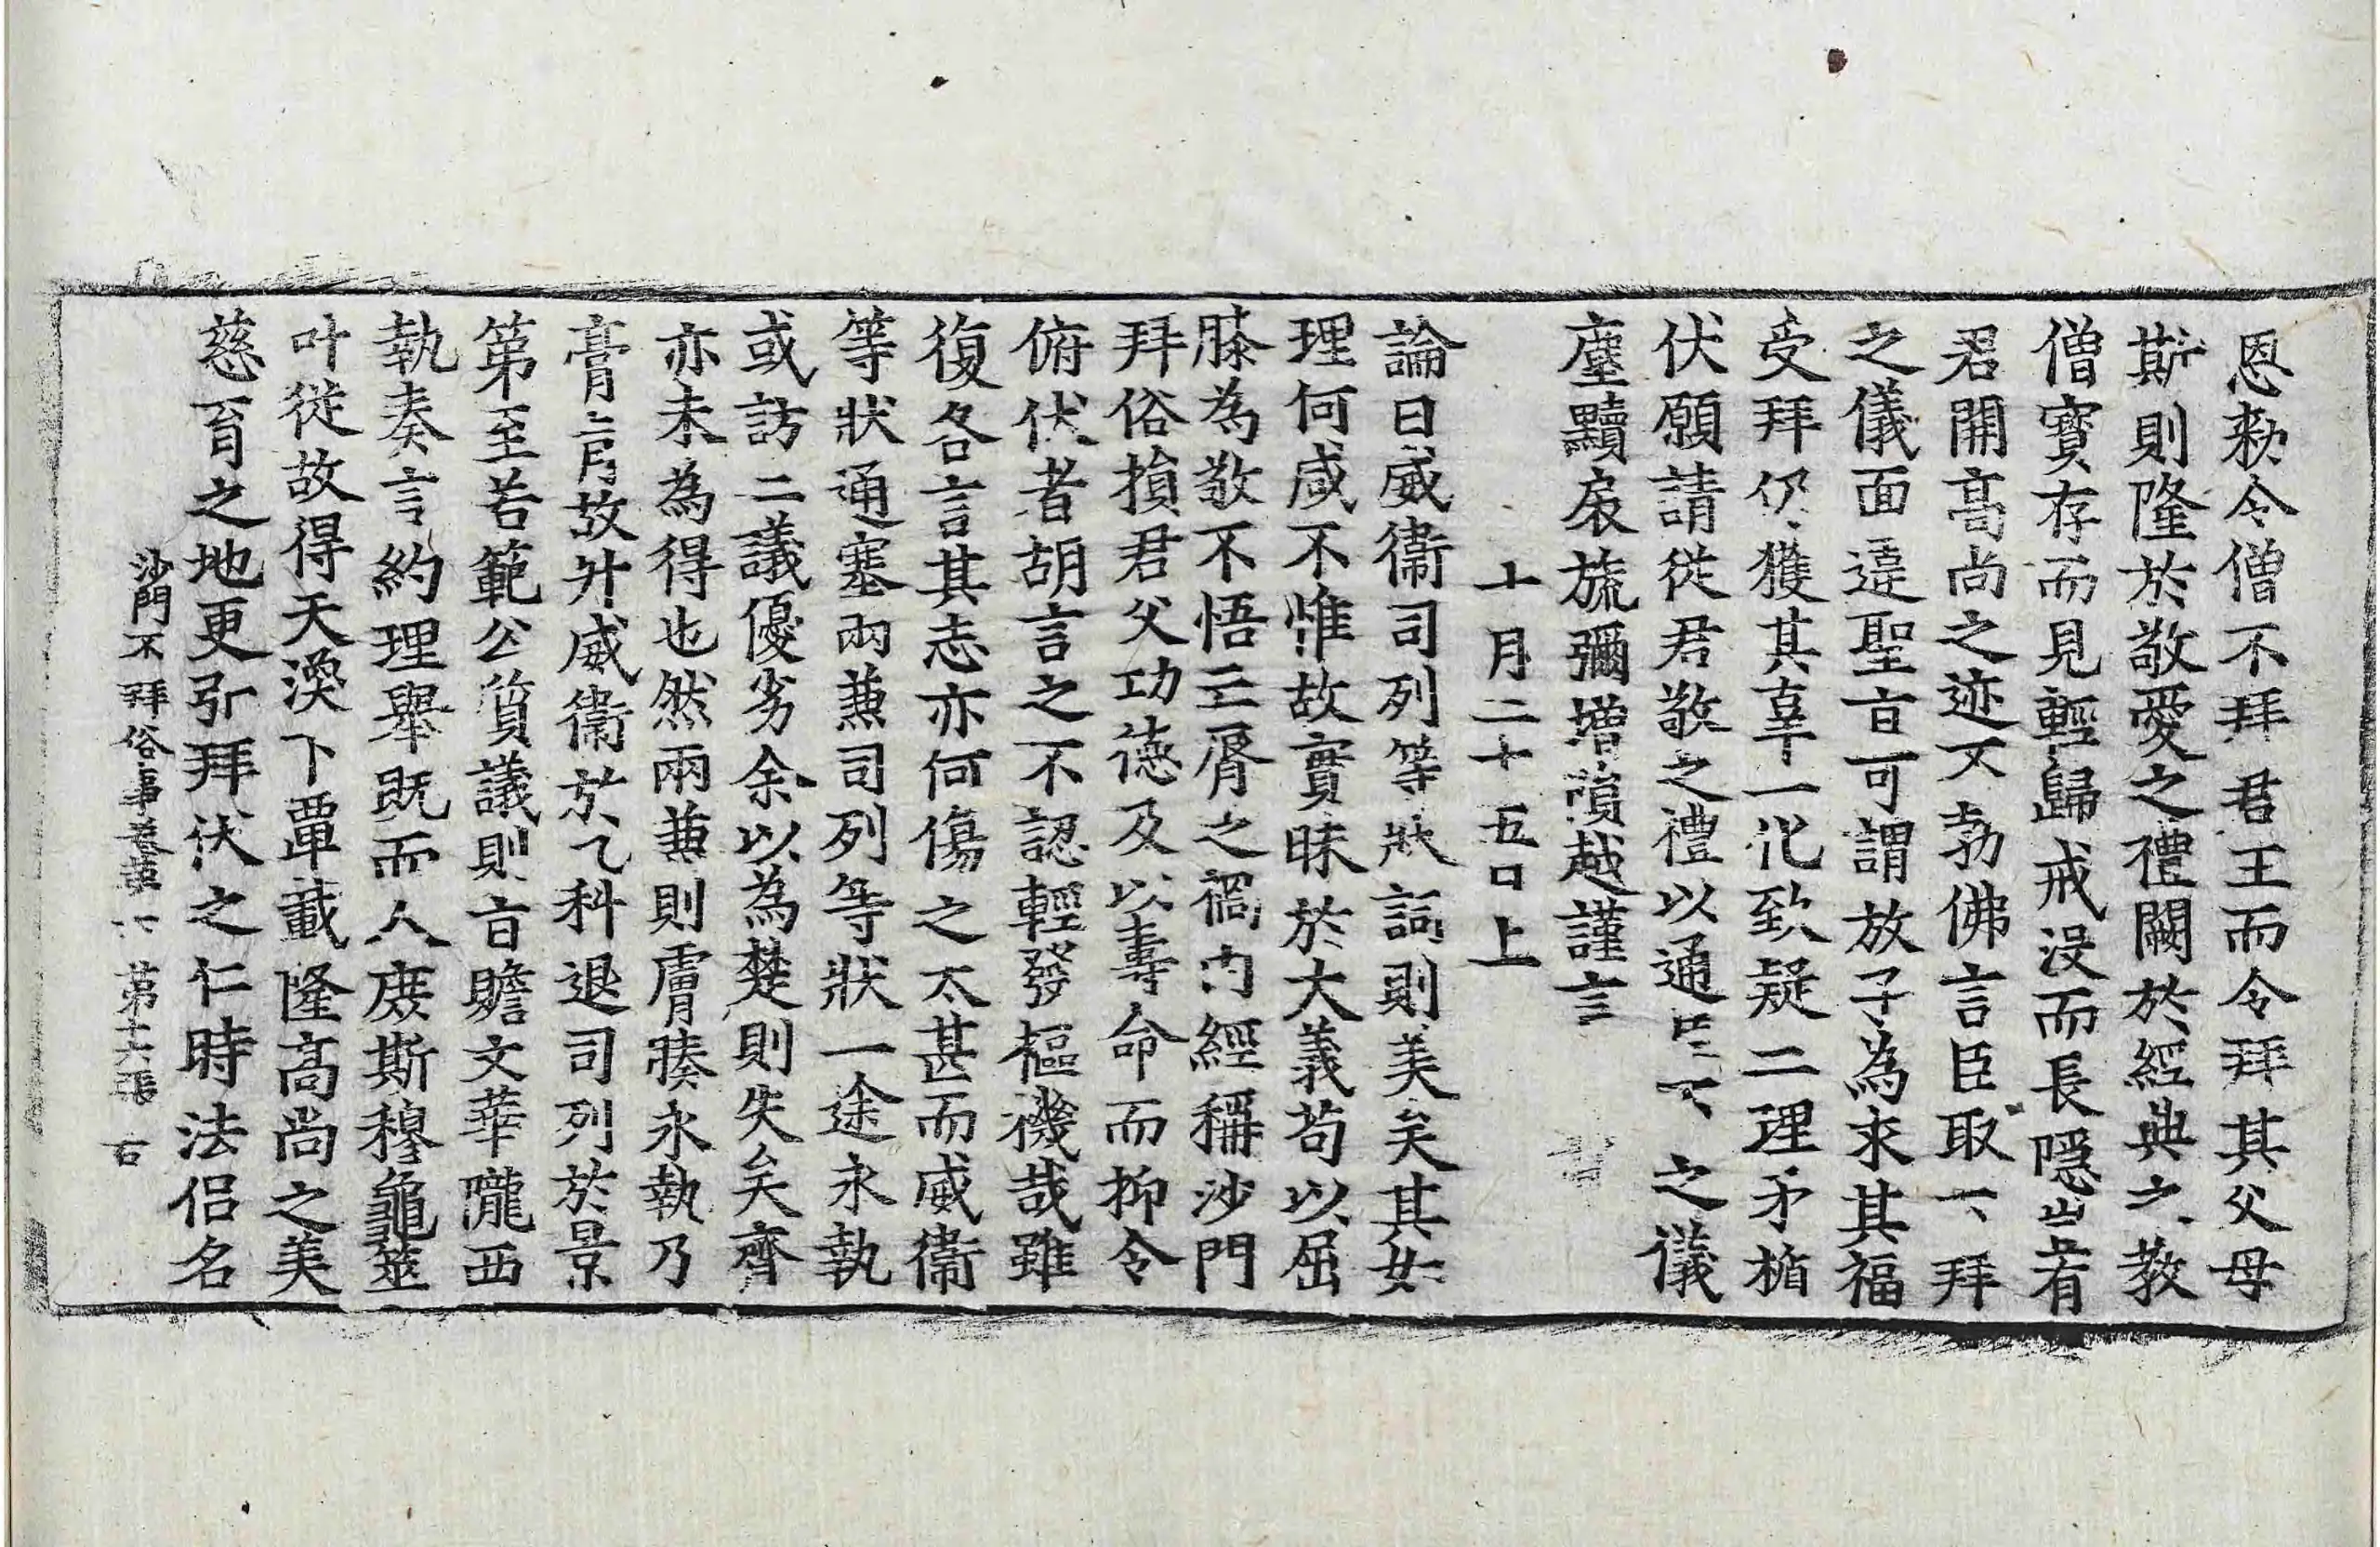 恩敕令僧不拜君王而令拜其父母
斯則隆於敬愛之禮闕於經典之教
僧寶存而見輕歸戒沒而長隱豈有
君開高尚之迹不勃佛言臣取下拜
之儀面違聖旨可謂放子為求其福
受拜仍獲其辜一化致疑二理矛楯
伏願請從君敬之禮以通臣下之儀
塵黷扆旒彌增殞越謹言
十月二十五日上
論曰威衛司列等狀詞則美矣其如
理何咸不惟故實昧於大義苟以屈
膝為敬不悟亖脣之禍內經稱沙門
拜俗損君父功德及以壽命而抑令
俯伏者胡言之不認輕發樞機哉雖
復各言其志亦何傷之太甚而威衛
等狀通塞兩兼司列等狀一途永執
或訪二議優劣余以為楚則失矣齊
亦未為得也然兩兼則膚腠永執乃
膏肓故升威衛於乙科退司列於景
第至若範公質議則旨贍文華隴西
執奏言約理舉既而人庶斯穆龜筮
叶從故得天渙下覃載隆高尚之美
慈育之地更引拜伏之仁時法侶名
沙門不拜俗事卷第六 第十六張 右